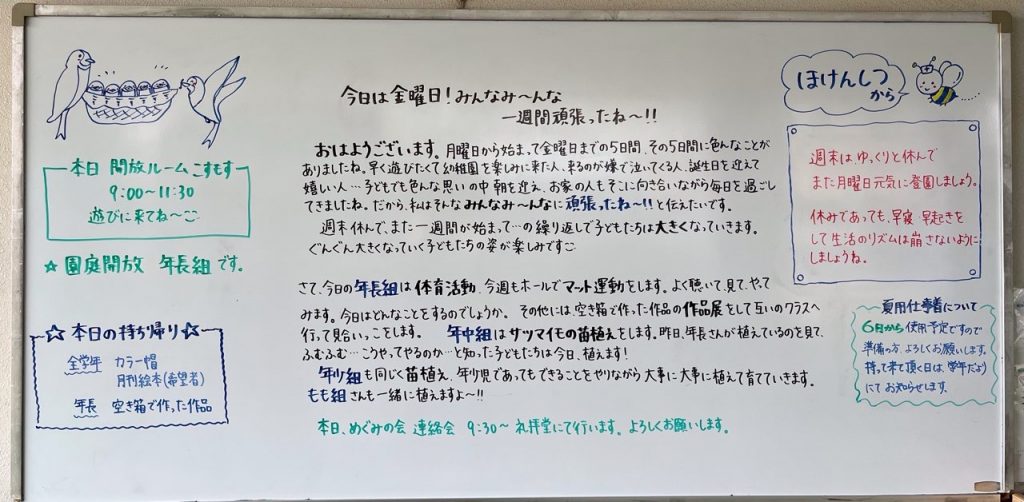 本日 開放ルームこすもす
9:00〜11:30
遊びに来てね〜
☆ 園庭開放 年長組 です。
☆ 本日の持ち帰り ☆
全学年 カラー帽
月刊絵本(希望者)
年長 空き箱で作った作品
今日は金曜日!みんなみ〜んな
一週間頑張ったね〜!!
おはようございます。月曜日から始まって金曜日までの5日間、その5日間に色んなことが
ありましたね。早く遊びたくて幼稚園を楽しみに来た人、来るのが嫌で泣いてる人、誕生日を迎えて
嬉しい人…子どもでも色んな思いの中朝を迎え、お家の人もそこに向き合いながら毎日を過ごし
てきましたね。だから、私はそんなみんなみ〜んなに頑張ったね〜!!と伝えたいです。
週末休んで、また一週間が始まって…の繰り返しで子どもたちは大きくなっていきます。
ぐんぐん大きくなっていく子どもたちの姿が楽しみです
さて、今日の年長組は体育活動、今週もホールでマット運動をします。よく聴いて、見て、やって
みます。今日はどんなことをするのでしょうか。その他には、空き箱で作った作品の作品展をして互いのクラスへ
行って見合いっこをします。 年中組はサツマイモの苗植えをします。昨日、年長さんが植えているのを見て、
ふむふむ…こうやってやるのか…と知った子どもたちは今日、植えます!
年少組も同じく苗植え、年少児であってもできることをやりながら大事に大事に植えて育てていきます。
もも組さんも一緒に植えますよ〜!!
本日、めぐみの会 連絡会 9:30〜 礼拝堂にて行います。よろしくお願いします。
ほけんしつ
から
週末は、ゆっくりと休んで
また月曜日元気に登園しましょう。
休みであっても、早寝 早起きを
して生活のリズムは崩さないように
しましょうね。
夏用仕事着について
6月から使用予定ですので
準備の方、よろしくお願いします。
持って来て頂く日は、学年だより
にてお知らせします。